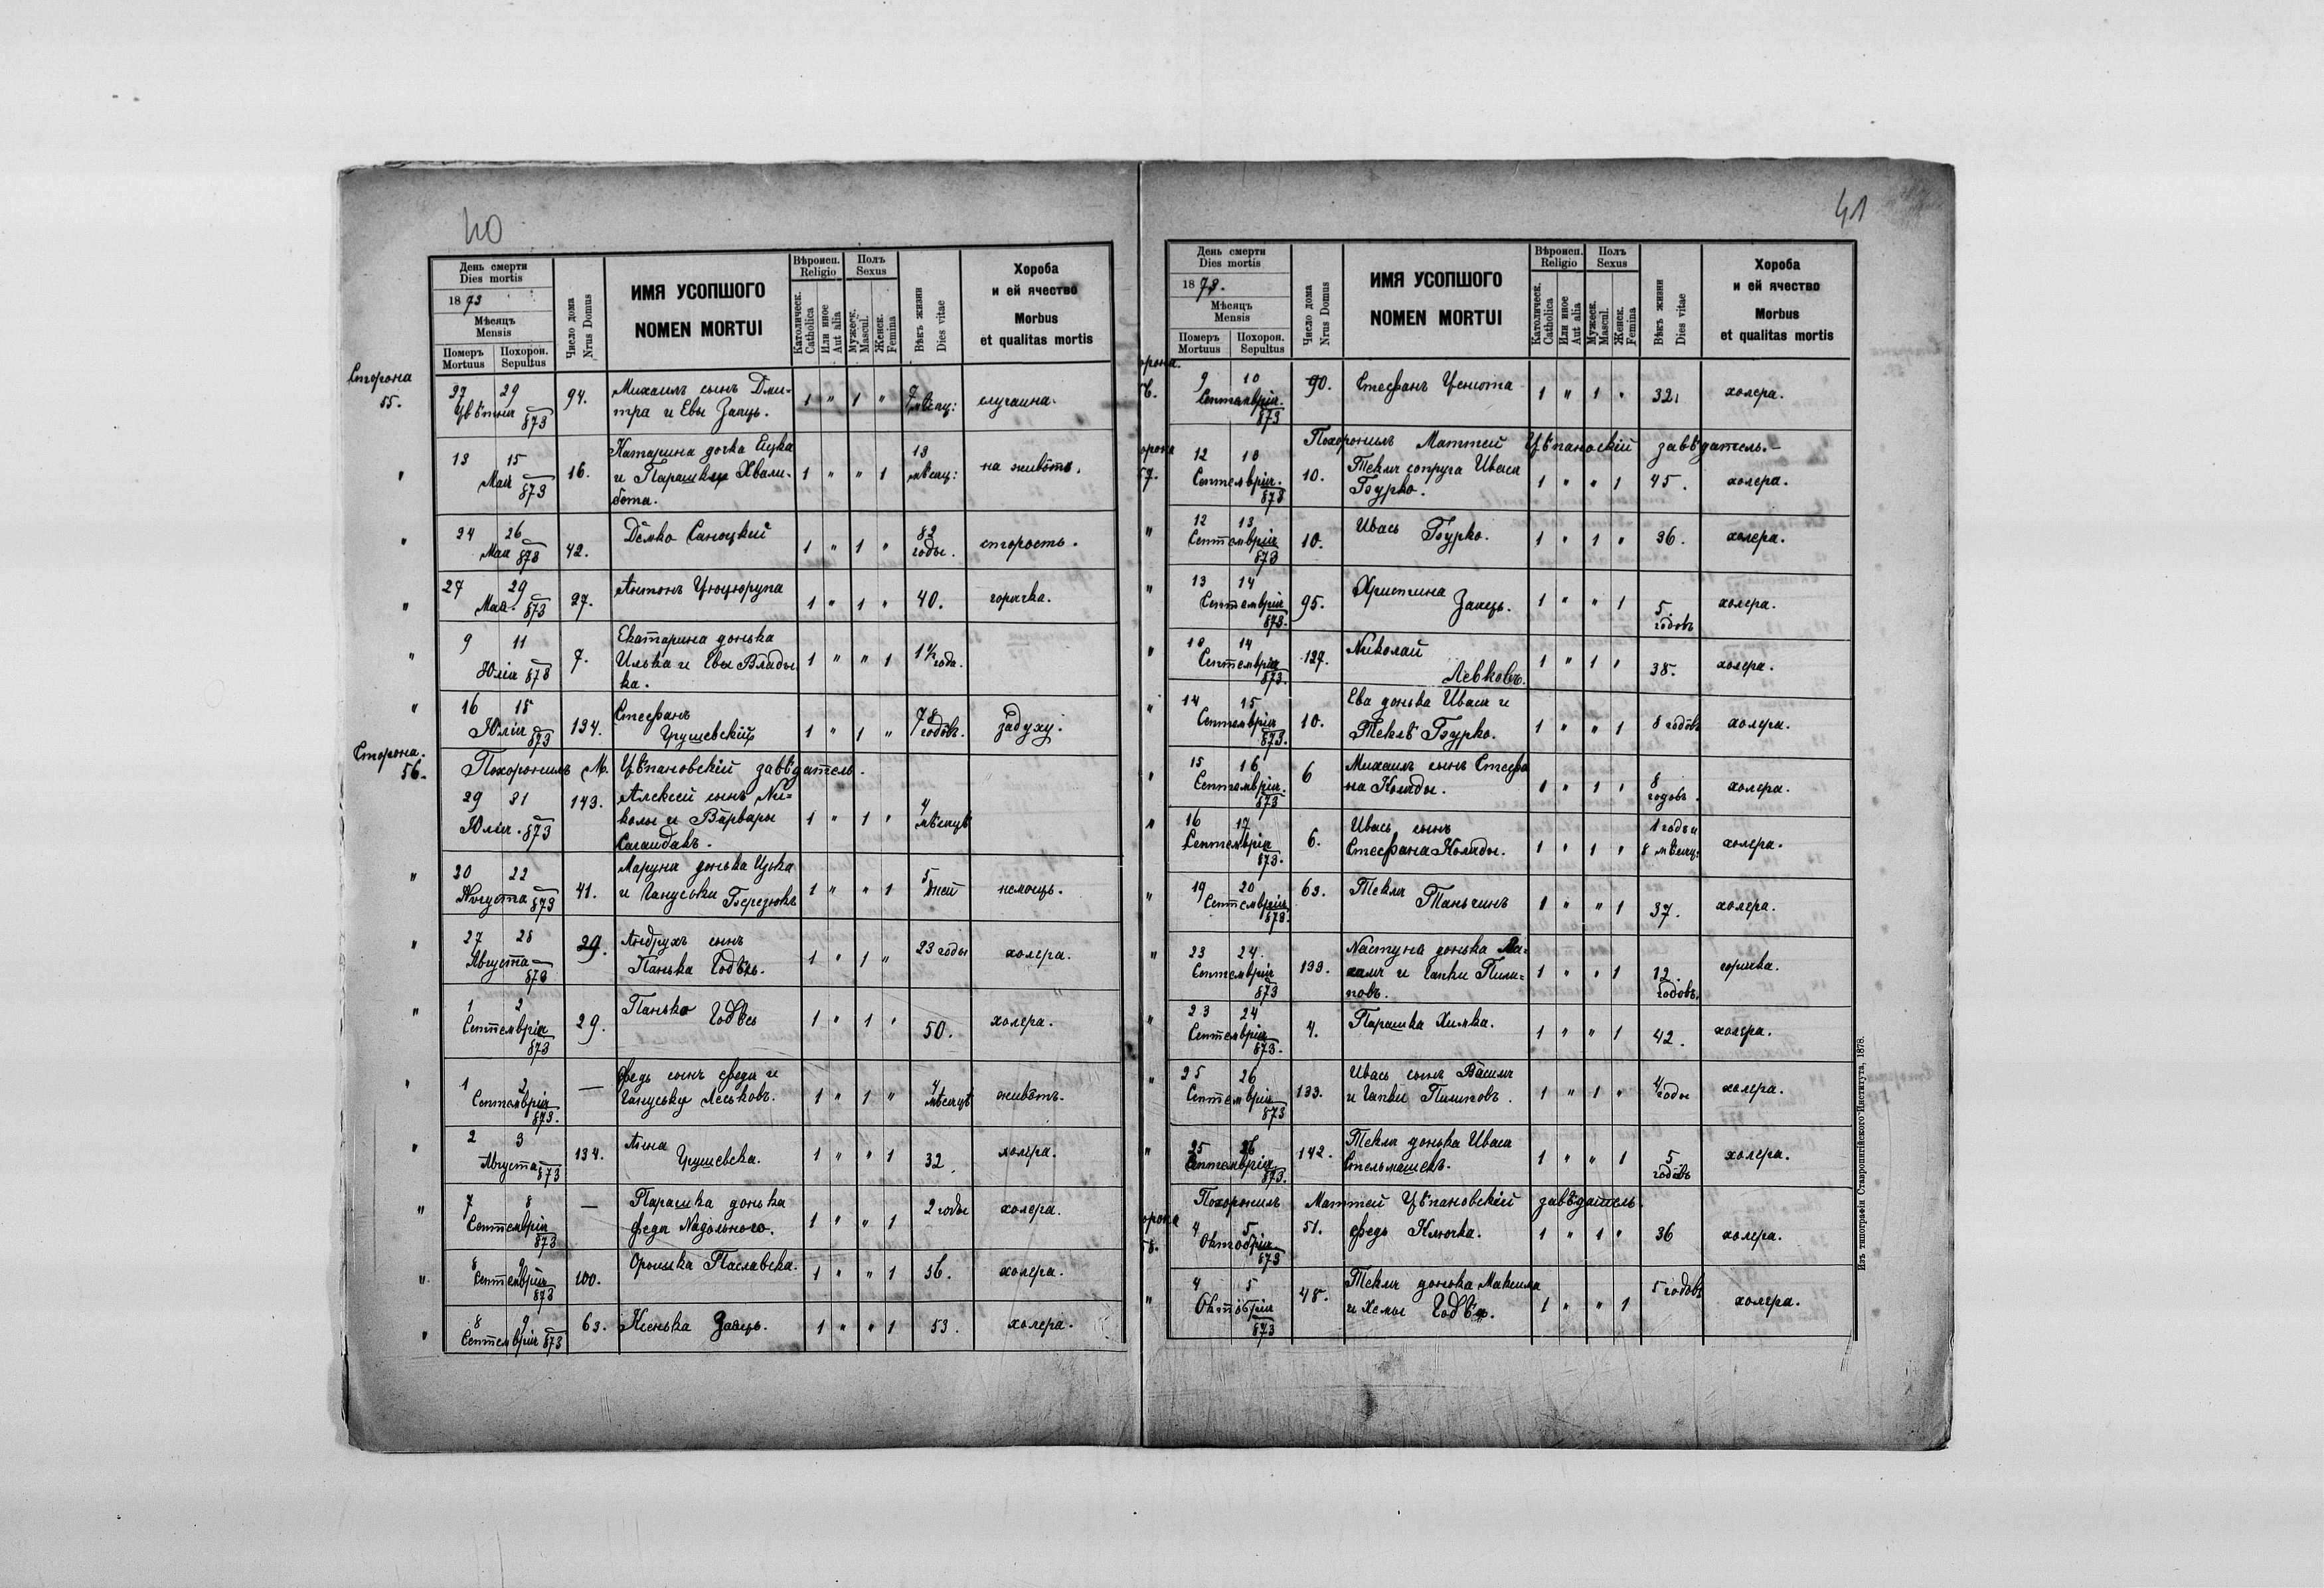 40
День смерти
Dies mortis
1873
Мѣсяцъ
Mensis
Померъ Похорон.
Mortuus Sepultus
Число дома
Nrus Domus
ИМЯ УСОПШОГО
NOMEN MORTUI
Вѣроисп.
Religio
Католическ.
Catholica
Или иное
Aut alia
Полъ
Sexus
Мужеск.
Mascul.
Женск.
Femina
Вѣкъ жизни
Dies vitae
Хороба
и ей ячество
Morbus
et qualitas mortis
Сторона
55.
27 29
Цвѣтня 873 94. Михаилъ сынъ Дми-
тра и Евы Заяць. 1 " 1 " 7 мѣсяц: случайна.
" 13 15
Мая 873 16. Катарина дочка Яцка
и Парашки Хвали-
бота. 1 " " 1 13 мѣсяц: на животъ.
" 24 26
Мая 873 42. Дємко Саноцкій 1 " 1 " 82 годы. старость.
" 27 29
Мая 873 27. Антонъ Цюцюрупа 1 " 1 " 40. горячка.
" 9 11
Юлія 873 7. Екатарина донька
Илька и Евы Влады
ка. 1 " " 1 1 1/2 года.
" 16 18
Юлія 873 134. Стефанъ
Грушевскій 1 " 1 " 78 годовъ. задуху.
Сторона
56.
Похоронилъ М. Цѣпановскій завѣдатель.
29 31
Юлія 873 143. Алексей сынъ Ни-
колы и Варвары
Сагайдакъ. 1 " 1 " 4 мѣсяцѣ
" 20 22
Августа 873 41. Маруня донька Ицька
и Гануськи Березюкъ 1 " " 1 5 дней немощь.
" 27 28
Августа 873 29. Андрухъ сынъ
Панька Годѣсь. 1 " 1 " 23 годы холера.
" 1 2
Септемврія 873 29. Панько Годѣсь 1 " 1 " 50. холера.
" 1 2
Септемврія 873. — Федь сынъ Федя и
Гануськи Леськовъ. 1 " 1 " 4 мѣсяцѣ животъ.
" 2 3
Августа 873 134. Анна
Грушевска. 1 " " 1 32. холера.
" 7 8
Септемврія 873 — Парашка донька
Федя Надольного. 1 " " 1 2 годы холера.
" 8 9
Септемврія 873 100. Орышка Паславска. 1 " " 1 56. холера.
" 8 9
Септемврія 873 63. Ксенька Заяць. 1 " " 1 53. холера.
41
День смерти
Dies mortis
1873.
Мѣсяцъ
Mensis
Померъ Похорон.
Mortuus Sepultus
Число дома
Nrus Domus
ИМЯ УСОПШОГО
NOMEN MORTUI
Вѣроисп.
Religio
Католическ.
Catholica
Или иное
Aut alia
Полъ
Sexus
Мужеск.
Mascul.
Женск.
Femina
Вѣкъ жизни
Dies vitae
Хороба
и ей ячество
Morbus
et qualitas mortis
орона.
9 10
Септемврія. 873 90. Стефанъ Ценюта 1 " 1 " 32. холера.
Похоронилъ Маттей Цѣпановскій завѣдатель.
орона
57.
12 10
Септемврія. 873 10. Текля супруга Ивася
Бурко. 1 " " 1 45. холера.
" 12 13
Септемврія 873 10. Ивась Бурко. 1 " 1 " 36. холера.
" 13 14
Септемврія 873. 95. Христина
Заяць. 1 " " 1 5 годовъ холера.
" 13 14
Септемврія 873. 127. Николай
Левковъ. 1 " 1 " 38. холера.
" 14 15
Септемврія 873. 10. Ева донька Ивася и
Теклѣ Бурко. 1 " " 1 8 годовъ холера.
" 15 16
Септемврія. 873 6 Михаилъ сынъ Стефа
на Коляды. 1 " 1 " 8 годовъ. холера.
" 16 17
Септемврія 873. 6. Ивась сынъ
Стефана Коляды. 1 " 1 " 1 годъ и
8 мѣсяц: холера.
" 19 20
Септемврія 873. 63. Текля
Таньчинъ 1 " " 1 37. холера.
" 23 24.
Септемврія 873 133. Настуня донька Ва-
силя и Гапки Пили-
повъ. 1 " " 1 12. годовъ. горячка.
" 23 24
Септемврія 873. 4. Парашка Химка. 1 " " 1 42. холера.
" 25 26
Септемврія 873 133. Ивась сынъ Василя
и Гапки Пилиповъ. 1 " 1 " 4 годы холера.
" 25 26
Септемврія 873. 142. Текля донька Ивася
Стельмашевъ. 1 " " 1 5 годовъ холера.
Похоронилъ Маттей Цѣпановскій завѣдатель.
орона
58.
4 5
Октобрія 873 51. Федь Ключка. 1 " 1 " 36 холера.
" 4 5
Октобрія 873 48. Текля донька Максима
и Хемы Годѣсь. 1 " " 1 5 годовъ холера.
Изъ типографіи Ставропигійского Института, 1878.